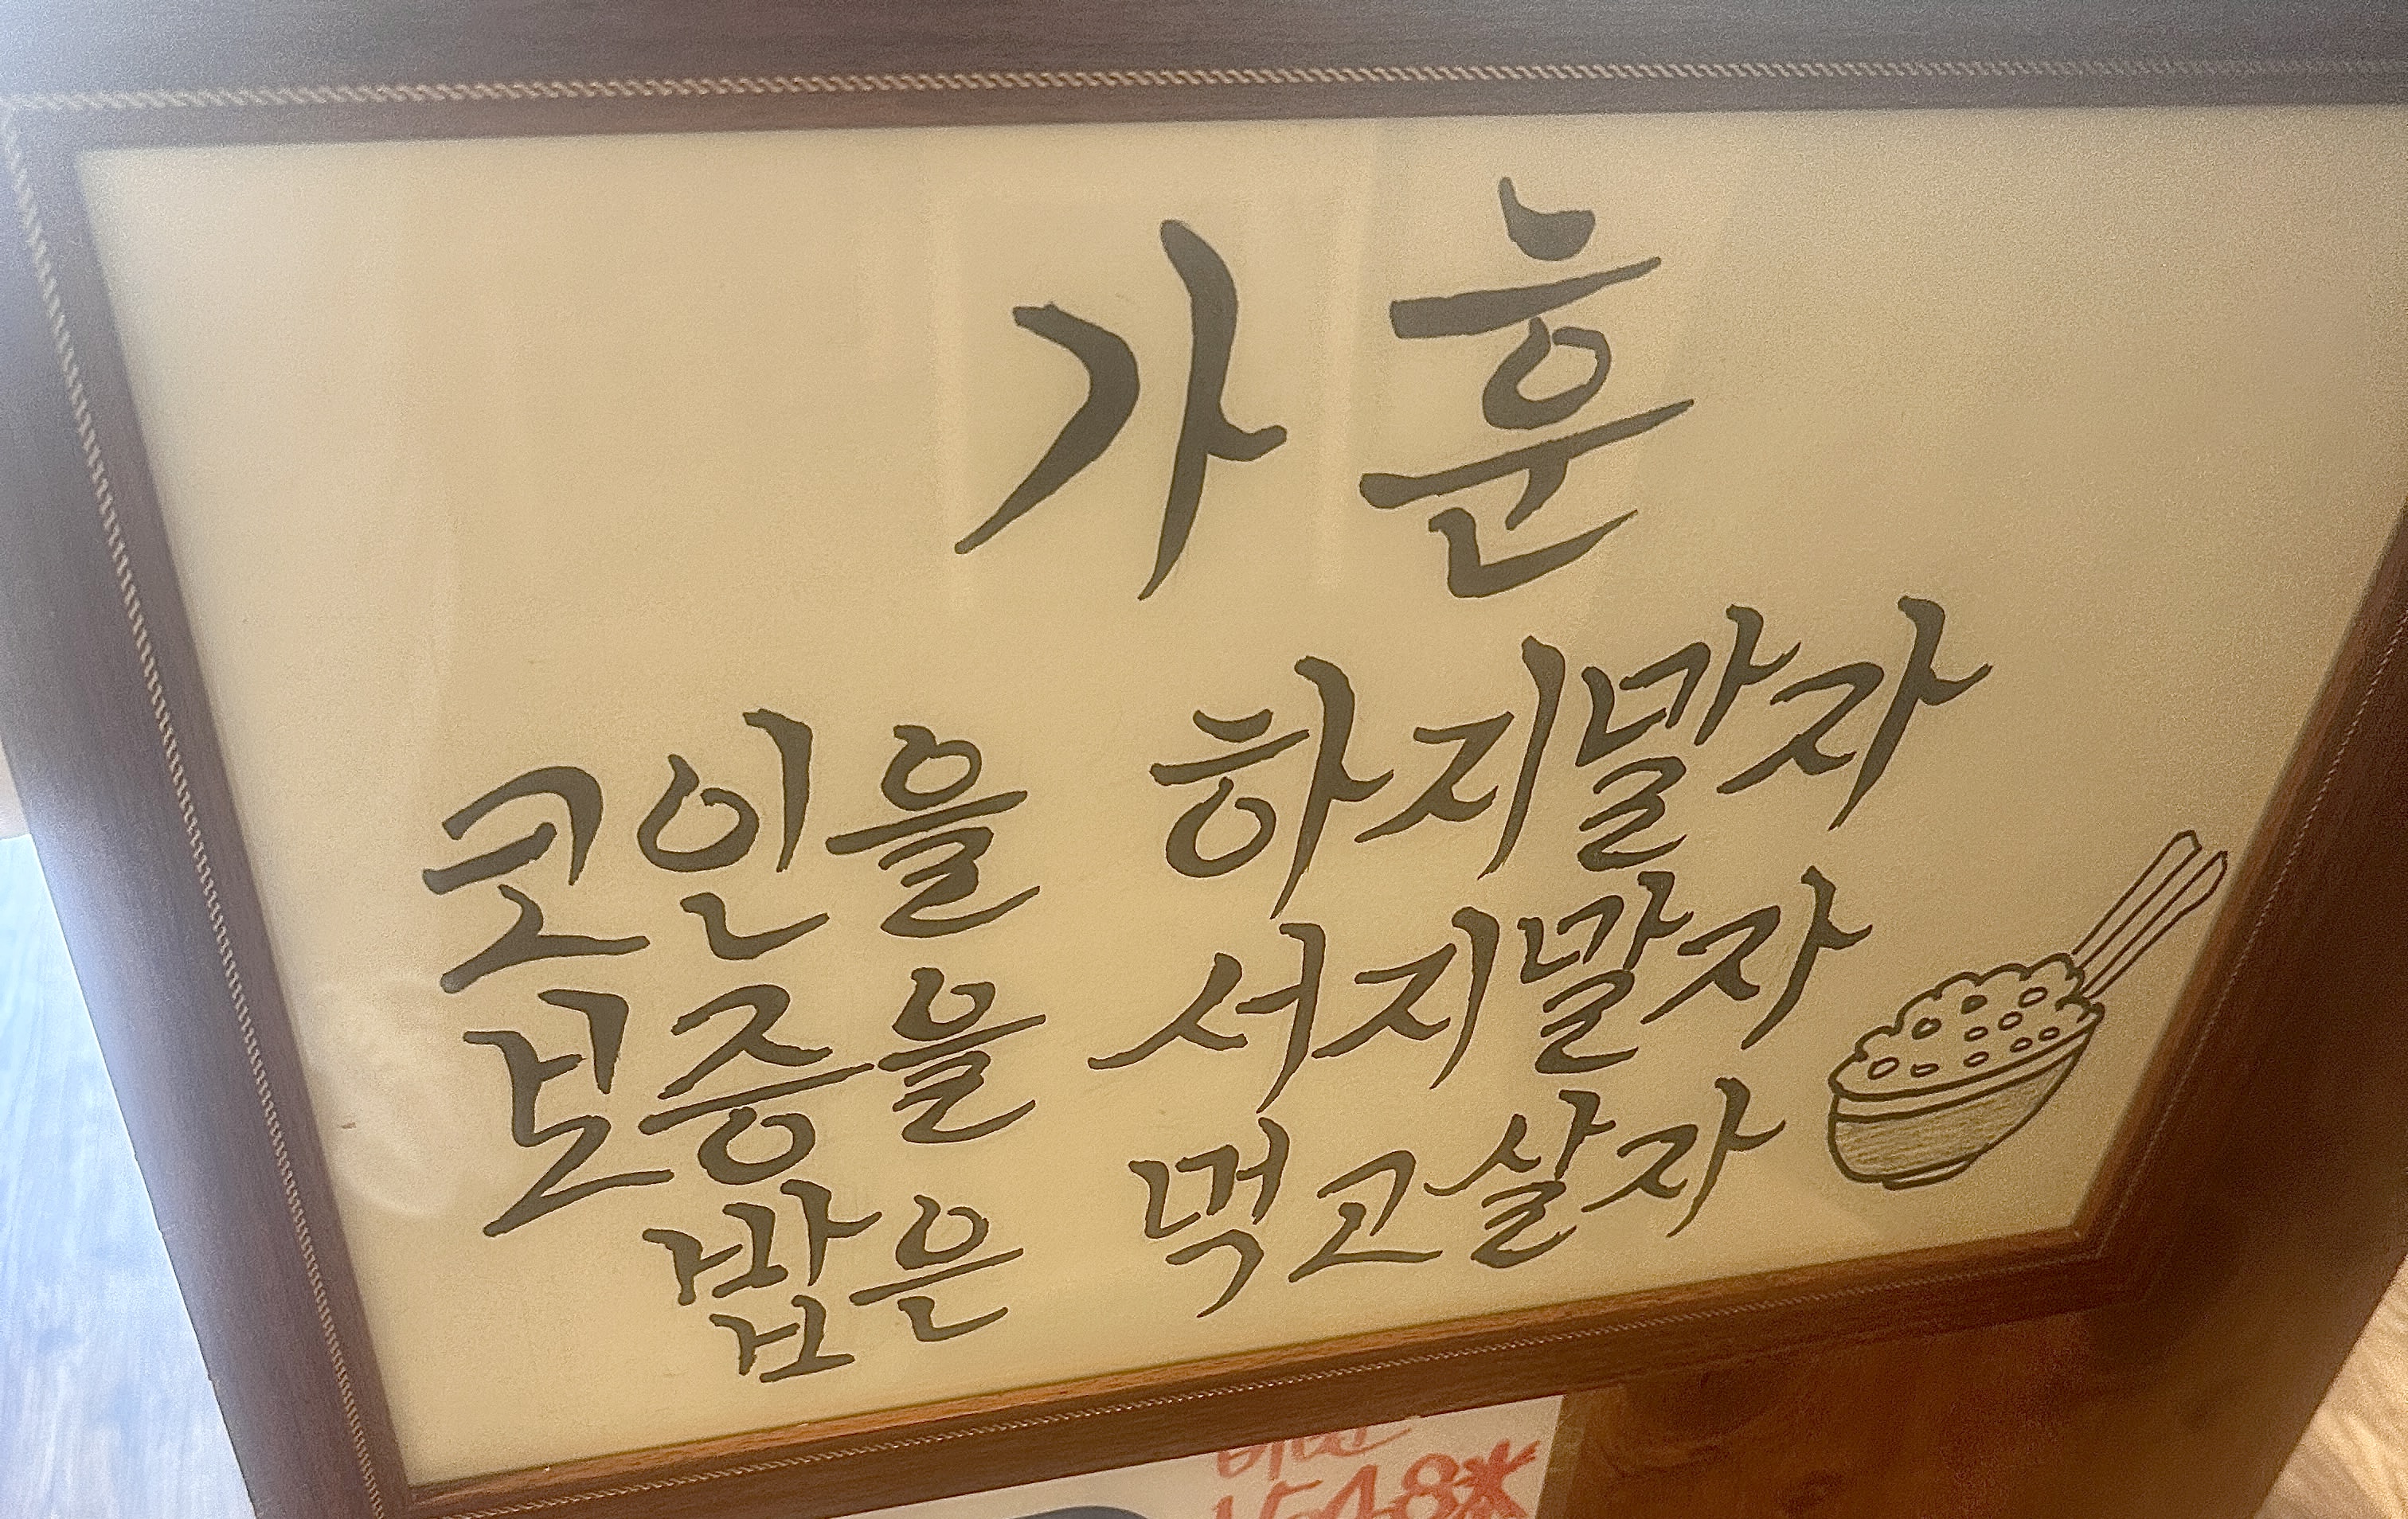 가훈
코인을 하지말자
보증을 서지말자
밥은 먹고살자